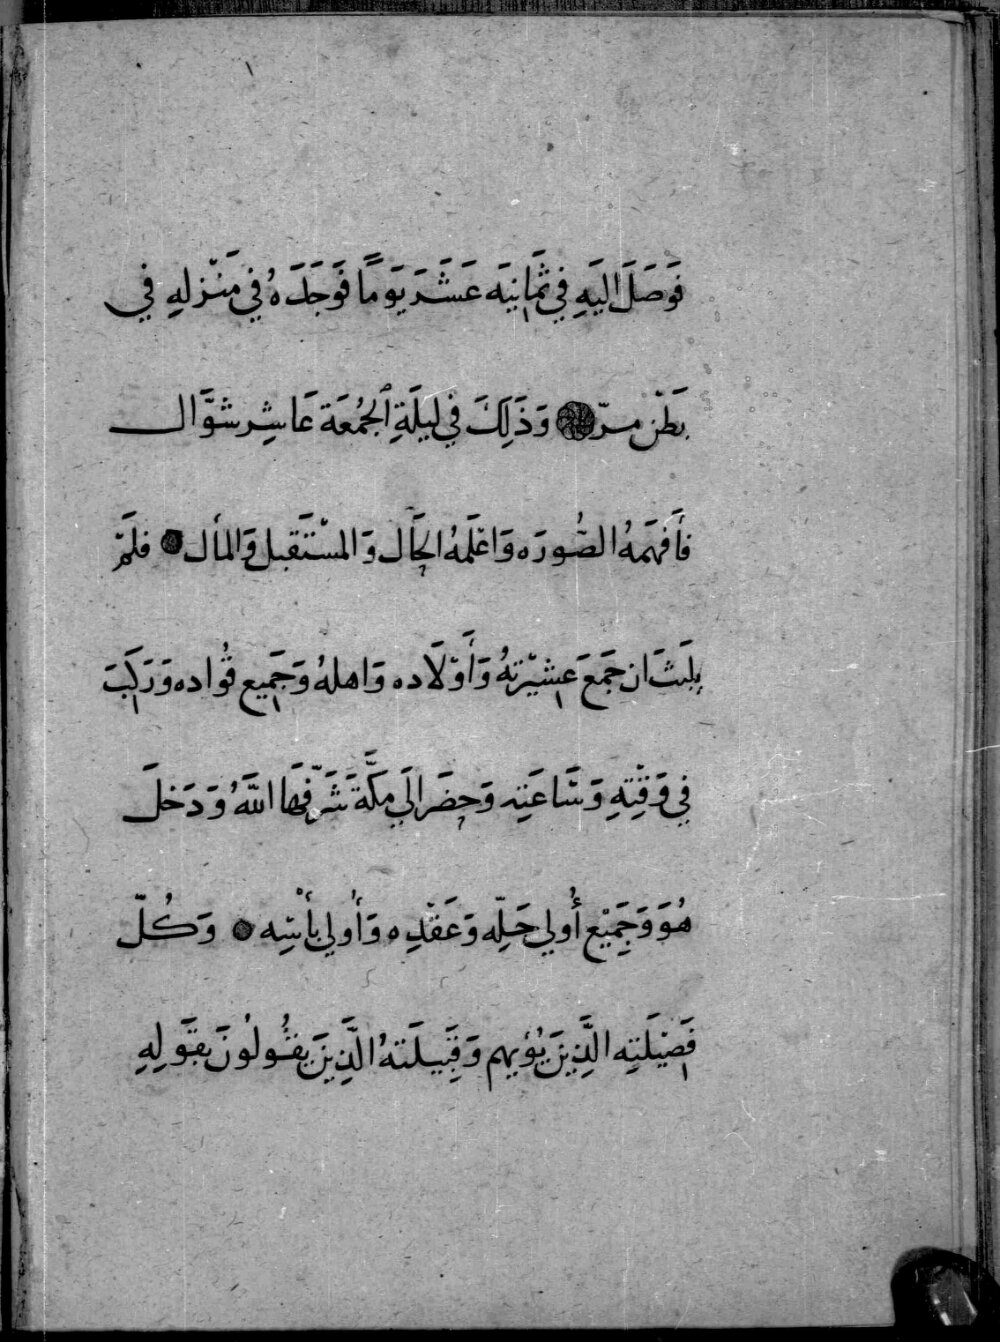 فَوَصَلَ اليَهِ فِي ثَمَانِيَه عَشَرَ يَومًا فَوَجَدَهُ فِي مَنْزلهِ فِي
بَطْن مرّ وَذَلِكَ فِي ليلَةِ الجُمُعَة عَاشِر شوَّال
فأَفهَمَهُ الصُّورَه وَاعْلَمَهُ الحَال وَالمسْتَقبل وَالمأل فلَمْ
يلَبَث ان جَمَعَ عَشيْرتهُ وَأَوْلَاده وَاهلهُ وَجَمِيع قُوَاده وَرَكبَ
فِي وَقْتِهِ وَسَاعَتِه وَحضَر الَي مَكَّةَ شَرَّفهَا اللَّهُ وَدَخلَ
هُوَ وَجَمِيْع أُولي حَلِّه وَعَقْدِه وَأُولي بأسِه وَكُلّ
فَصِيْلَتِه الَّذِينَ يُؤيهم وَقَبِيلَتهُ الَّذِينَ يقُولُونَ بقَولِهِ